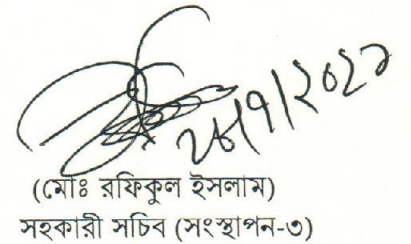 ২৮/৭/২০২১
(মোঃ রফিকুল ইসলাম)
সহকারী সচিব (সংস্থাপন-৩)